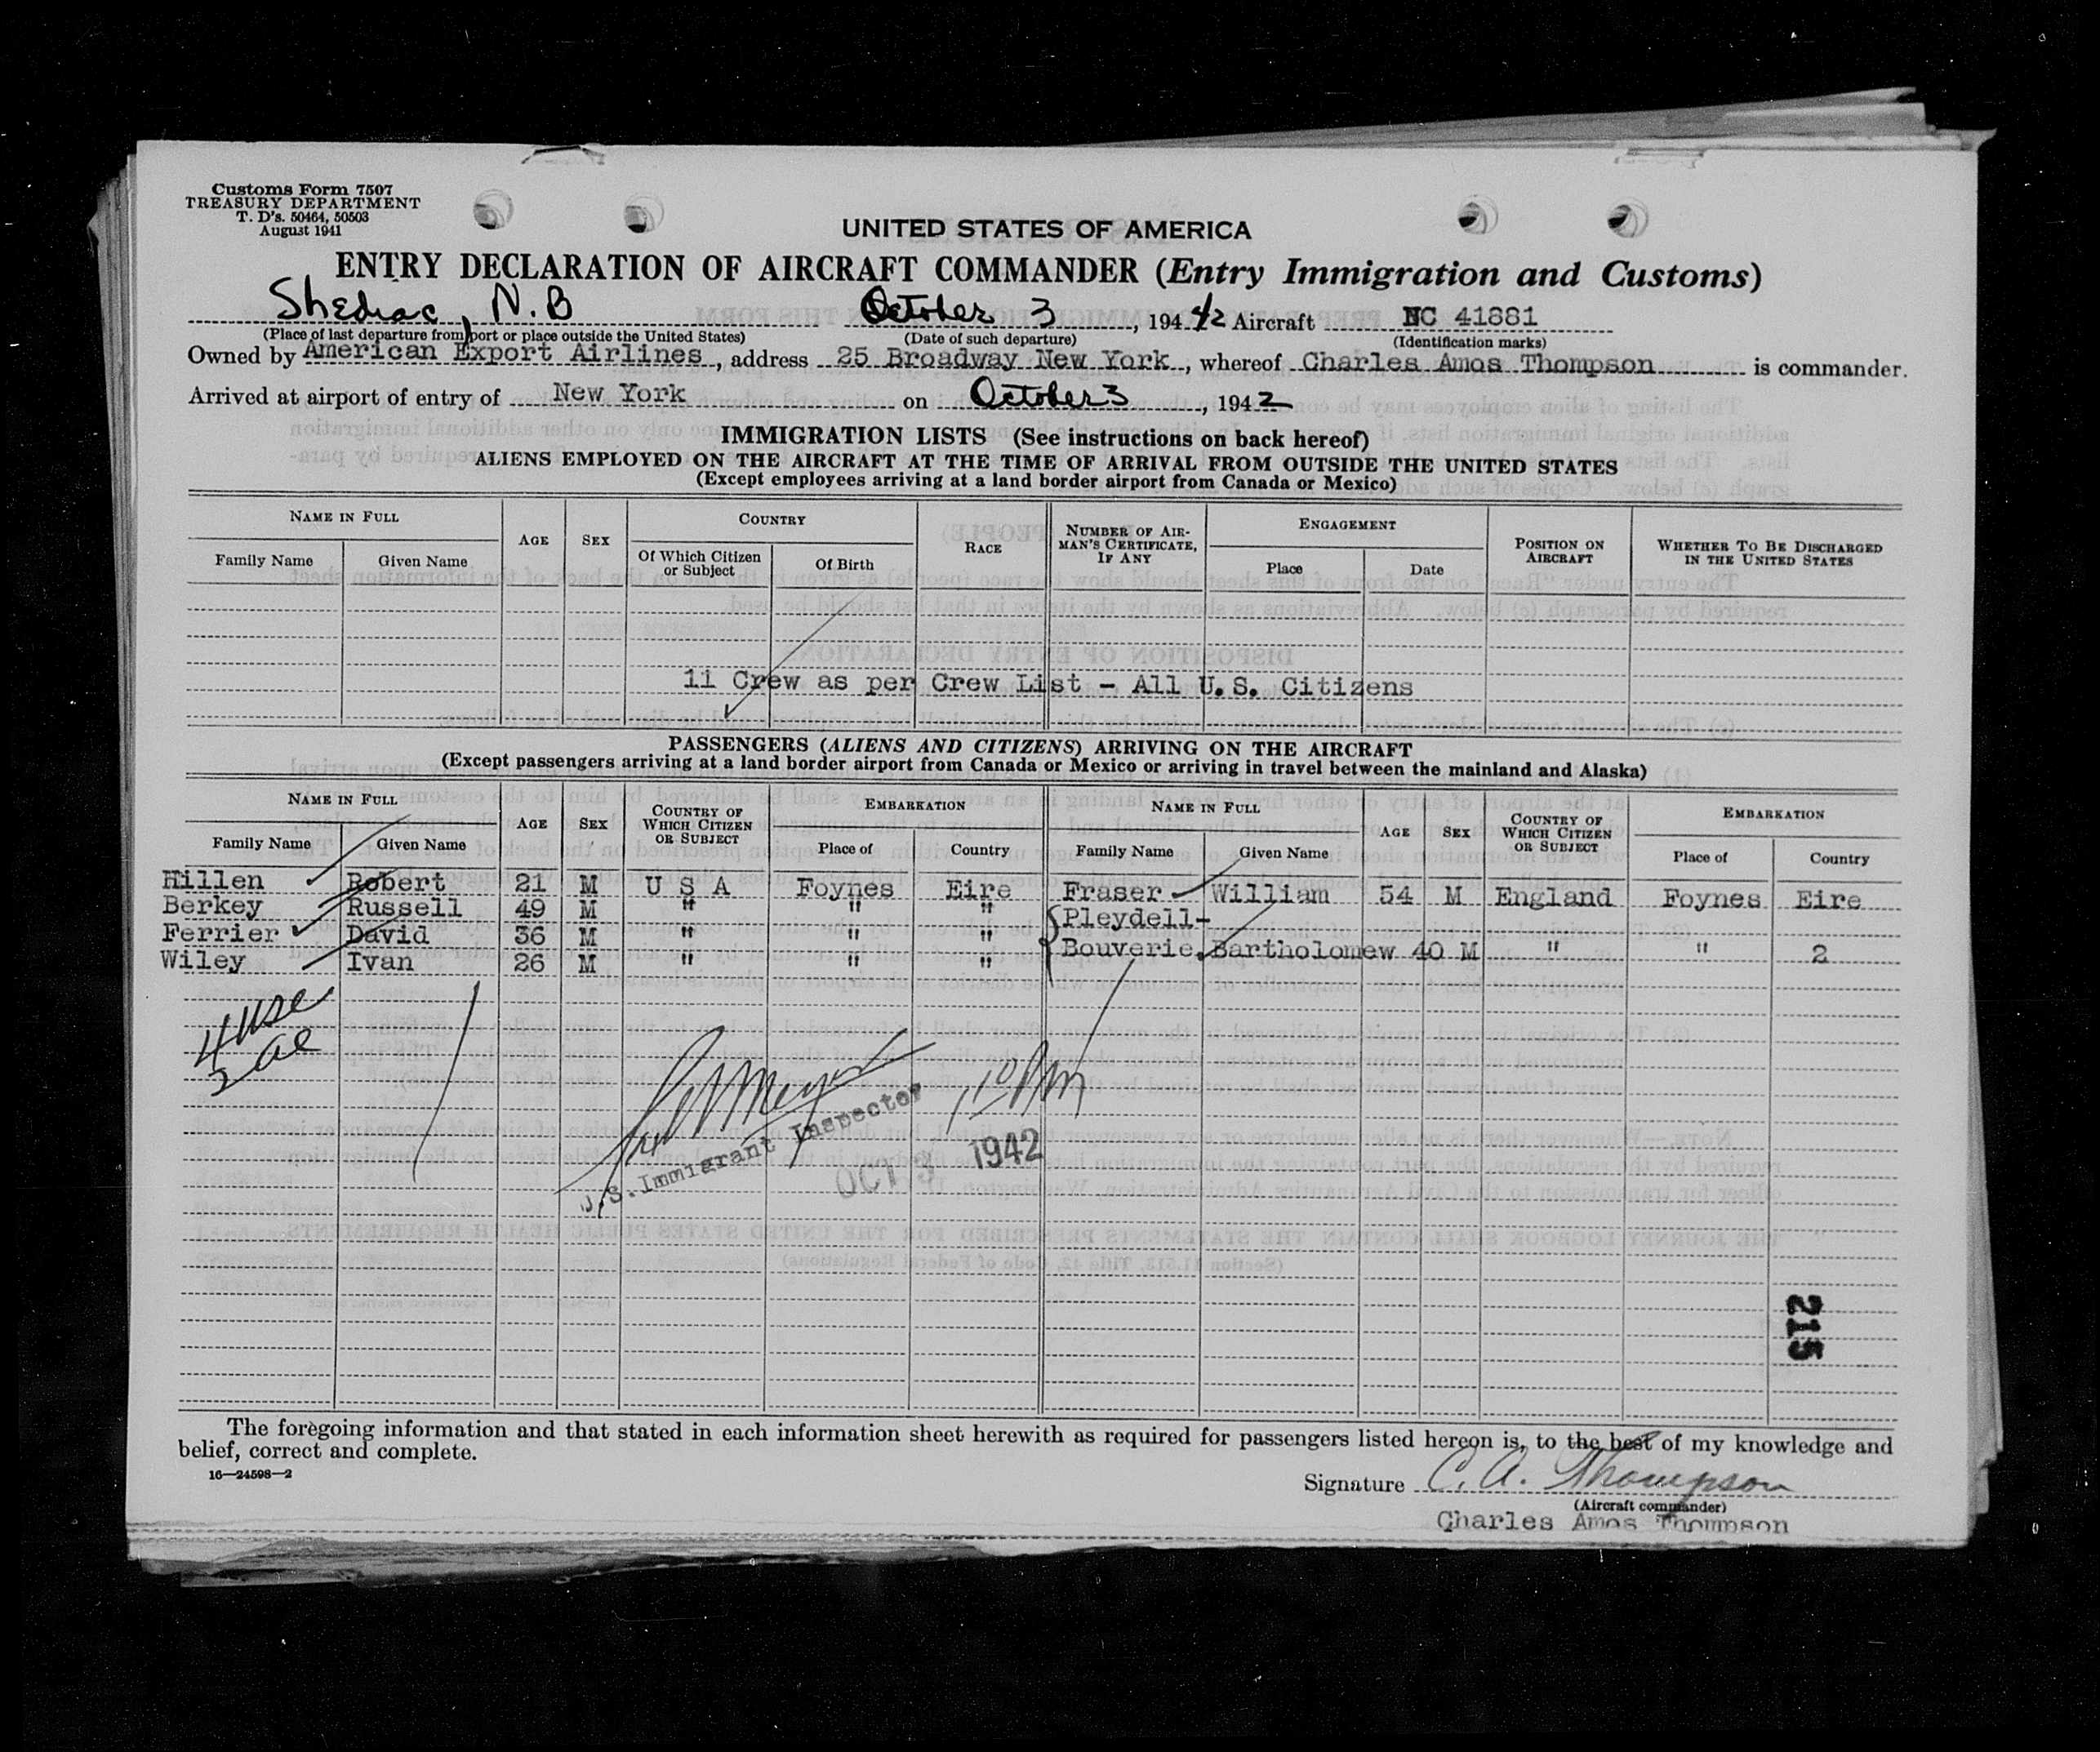 Customs Form 7507
TREASURY DEPARTMENT
T. D's. 50464, 50503
August 1941
UNITED STATES OF AMERICA
ENTRY DECLARATION OF AIRCRAFT COMMANDER (Entry Immigration and Customs)
Shediac, N.B October 3, 1942 Aircraft NC 41881
(Place of last departure from port or place outside the United States) (Date of such departure) (Identification marks)
Owned by American Export Airlines, address 25 Broadway New York, whereof Charles Amos Thompson is commander.
Arrived at airport of entry of New York on October 3, 1942
IMMIGRATION LISTS (See instructions on back hereof)
ALIENS EMPLOYED ON THE AIRCRAFT AT THE TIME OF ARRIVAL FROM OUTSIDE THE UNITED STATES
(Except employees arriving at a land border airport from Canada or Mexico)
NAME IN FULL AGE SEX COUNTRY RACE NUMBER OF AIRMAN'S CERTIFICATE, IF ANY ENGAGEMENT POSITION ON AIRCRAFT WHETHER TO BE DISCHARGED IN THE UNITED STATES
Family Name Given Name Of Which Citizen or Subject Of Birth Place Date
11 Crew as per Crew List - All U.S. Citizens
PASSENGERS (ALIENS AND CITIZENS) ARRIVING ON THE AIRCRAFT
(Except passengers arriving at a land border airport from Canada or Mexico or arriving in travel between the mainland and Alaska)
NAME IN FULL AGE SEX COUNTRY OF WHICH CITIZEN OR SUBJECT EMBARKATION NAME IN FULL AGE SEX COUNTRY OF WHICH CITIZEN OR SUBJECT EMBARKATION
Family Name Given Name Place of Country Family Name Given Name Place of Country
Hillen Robert 21 M U S A Foynes Eire Fraser William 54 M England Foynes Eire
Berkey Russell 49 M " " " Pleydell-
Ferrier David 36 M " " " Bouverie. Bartholomew 40 M " " 2
Wiley Ivan 26 M " " "
4 USC
2 al
1 10 PM
U.S. Immigrant Inspector
OCT 3 1942
215
The foregoing information and that stated in each information sheet herewith as required for passengers listed hereon is, to the best of my knowledge and
belief, correct and complete.
16—24598—2
Signature C. A. Thompson
(Aircraft commander)
Charles Amos Thompson